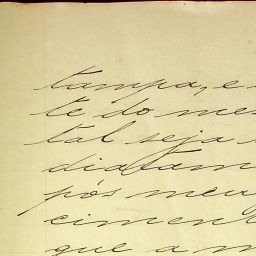 tampa, e
te do mes
tal seja
diatam
pós meu
ciment
que a m